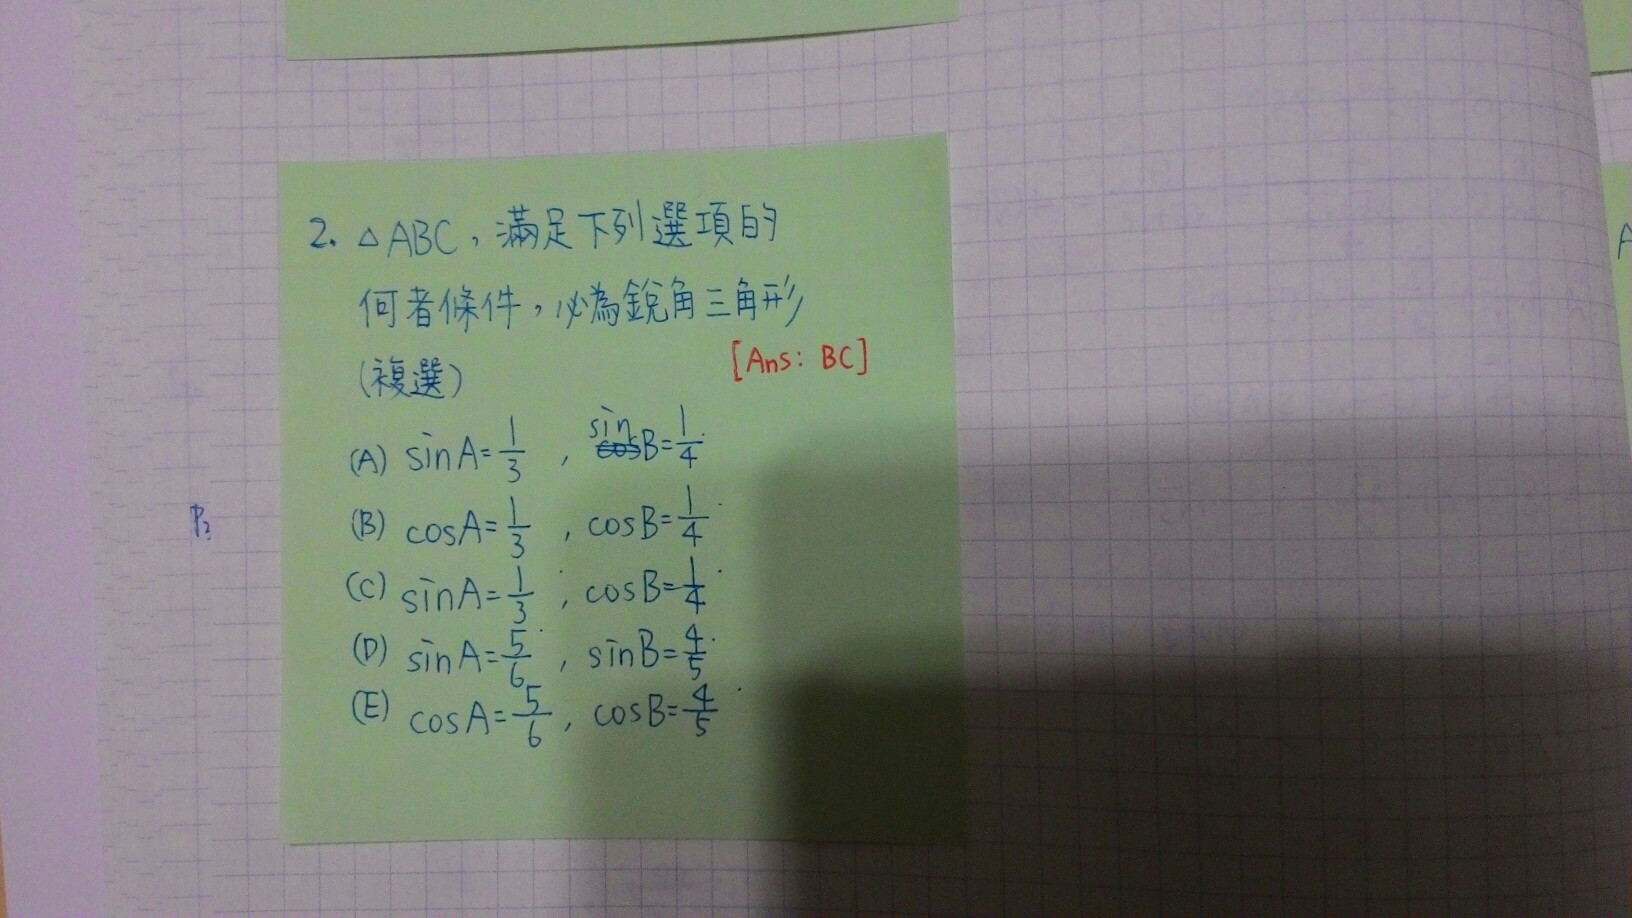 2. △ABC，滿足下列選項的
何者條件，必為銳角三角形
(複選) [Ans: BC]
(A) sinA=1/3 , sinB=1/4
(B) cosA=1/3 , cosB=1/4
(C) sinA=1/3 , cosB=1/4
(D) sinA=5/6 , sinB=4/5
(E) cosA=5/6 , cosB=4/5
A